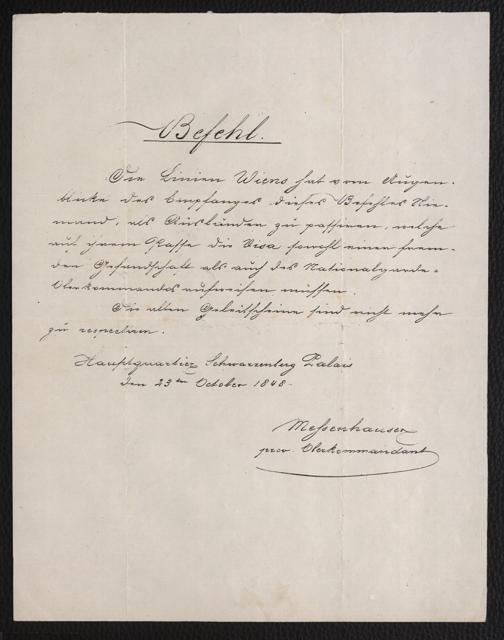 Befehl.
Die Linien Wiens hat vom Augen-
blicke des Empfanges dieses Befehles Nie-
mand, als Ausländer zu passiren, welche
auf ihrem Passe die Visa sowohl einer frem-
den Gesandschaft als auch des Nationalgarde-
Oberkommandos aufweisen müssen.
Die alten Geleitscheine sind nicht mehr
zu respectiren.
Hauptquartier Schwarzenberg Palais
den 23ten October 1848.
Messenhauser
prov. Oberkommandant